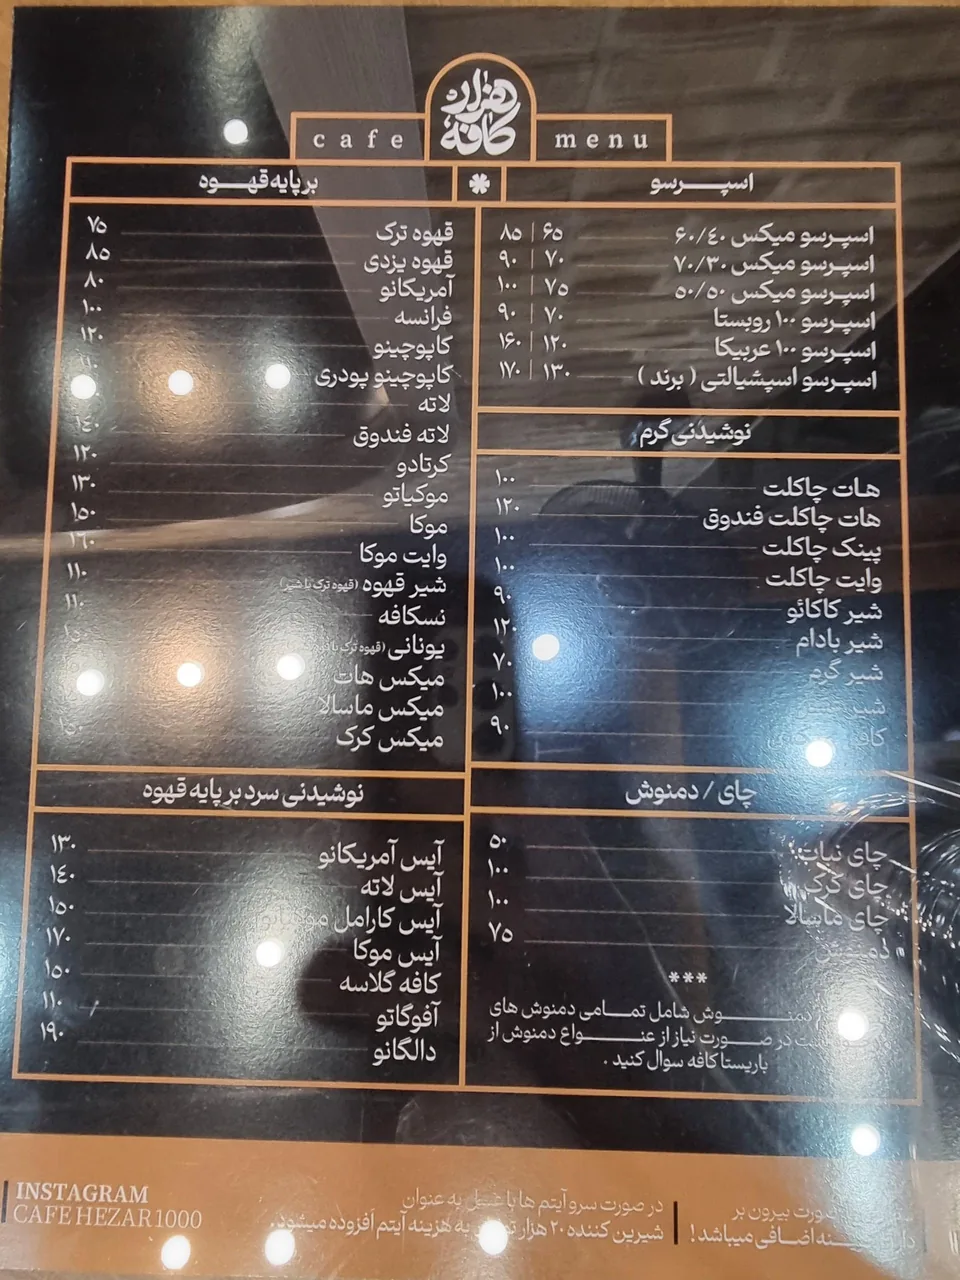 هزار
کافه
cafe menu
اسپرسو
اسپرسو میکس ۶۰/۴۰ ۶۵ | ۸۵
اسپرسو میکس ۷۰/۳۰ ۷۰ | ۹۰
اسپرسو میکس ۵۰/۵۰ ۷۵ | ۱۰۰
اسپرسو ۱۰۰ روبستا ۷۰ | ۹۰
اسپرسو ۱۰۰ عربیکا ۱۲۰ | ۱۶۰
اسپرسو اسپشیالتی ( برند ) ۱۳۰ | ۱۷۰
نوشیدنی گرم
هات چاکلت ۱۰۰
هات چاکلت فندوق ۱۲۰
پینک چاکلت ۱۰۰
وایت چاکلت ۱۰۰
شیر کاکائو ۹۰
شیر بادام ۱۲۰
شیر گرم ۷۰
شیر ۱۰۰
۹۰
چای / دمنوش
چای نبات ۵۰
چای کرک ۱۰۰
چای ماسالا ۱۰۰
۷۵
***
دمنوش شامل تمامی دمنوش های
در صورت نیاز از عنواع دمنوش از
باریستا کافه سوال کنید .
بر پایه قهوه
قهوه ترک ۷۵
قهوه یزدی ۸۵
آمریکانو ۸۰
فرانسه ۱۰۰
کاپوچینو ۱۲۰
کاپوچینو پودری
لاته
لاته فندوق ۱۴۰
کرتادو ۱۲۰
موکیاتو ۱۳۰
موکا ۱۵۰
وایت موکا ۱۶۰
شیر قهوه (قهوه ترک با شیر) ۱۱۰
نسکافه ۱۱۰
یونانی (قهوه ترک با
میکس هات
میکس ماسالا
میکس کرک
نوشیدنی سرد بر پایه قهوه
آیس آمریکانو ۱۳۰
آیس لاته ۱۴۰
آیس کارامل ۱۵۰
آیس موکا ۱۷۰
کافه گلاسه ۱۵۰
آفوگاتو ۱۱۰
دالگانو ۱۹۰
صورت بیرون بر
اضافی میباشد !
در صورت سرو آیتم ها با عسل به عنوان
شیرین کننده ۲۰ هزار تومان به هزینه آیتم افزوده میشود.
INSTAGRAM
CAFE HEZAR1000